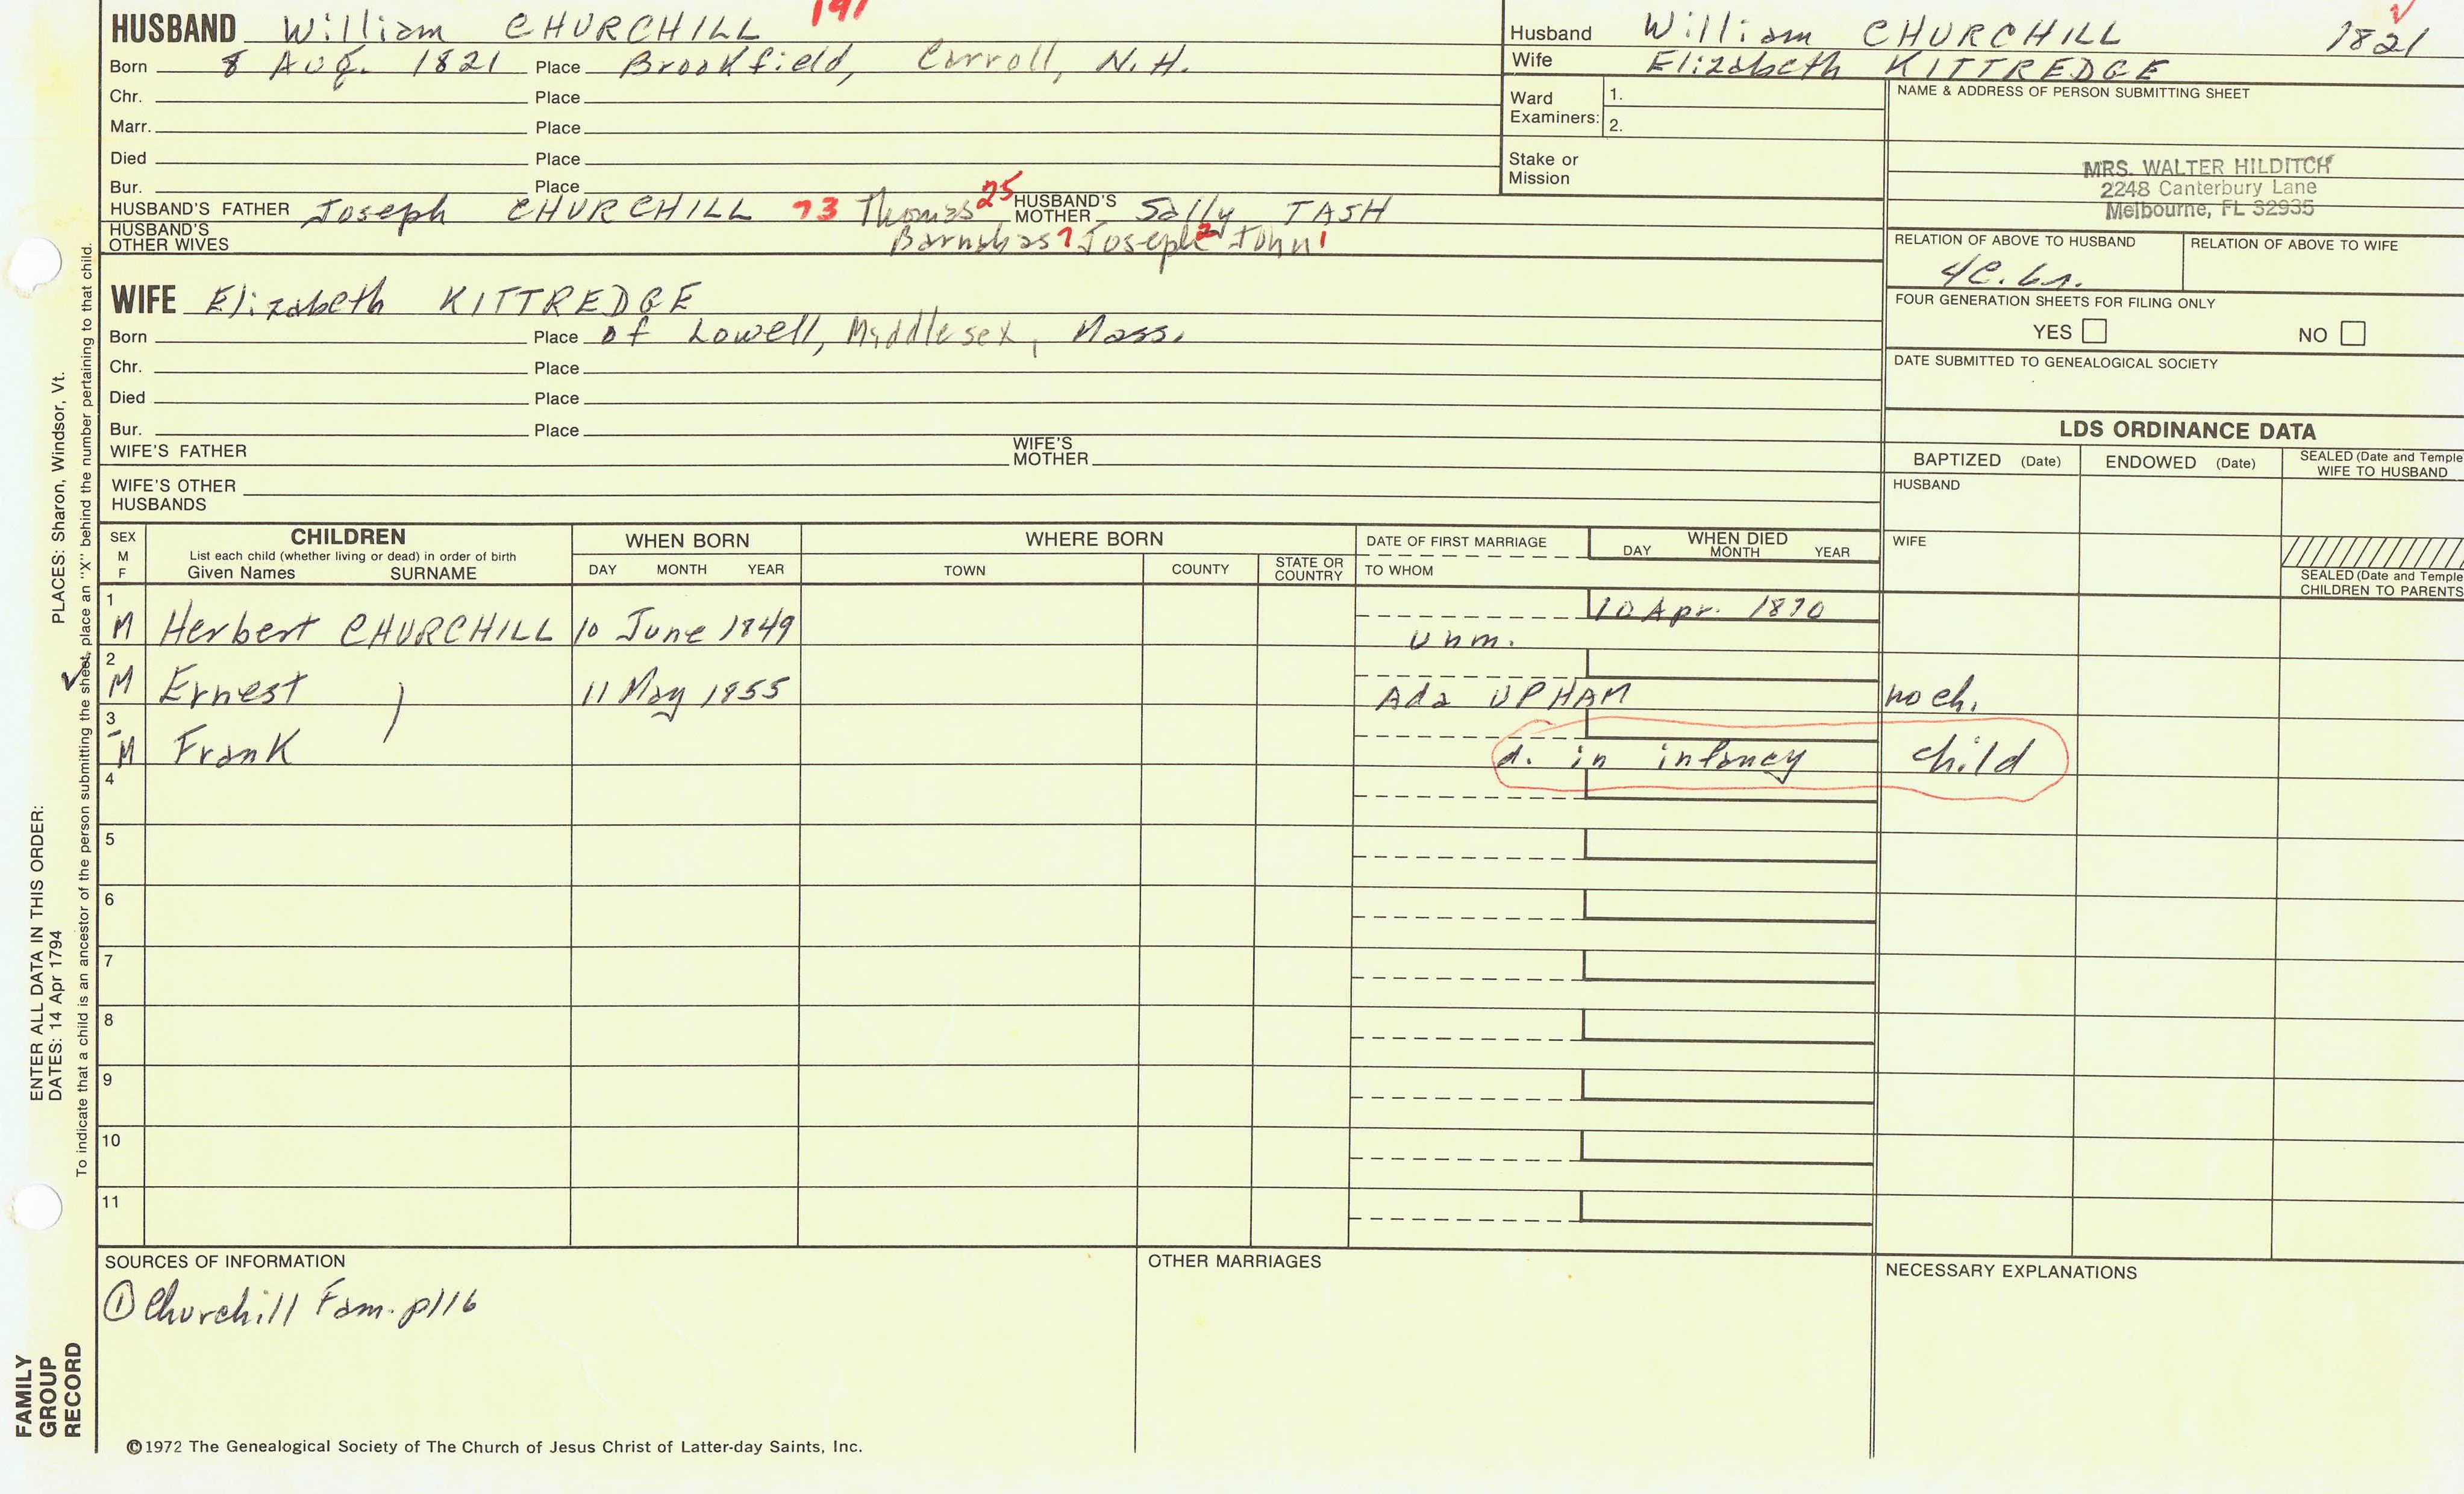 HUSBAND William CHURCHILL 191
Born 8 Aug. 1821 Place Brookfield, Carroll, N.H.
Chr. Place
Marr. Place
Died Place
Bur. Place
HUSBAND'S FATHER Joseph CHURCHILL 73 Thomas 25 HUSBAND'S MOTHER Sally TASH
HUSBAND'S OTHER WIVES Barnabas 7 Joseph 2 John 1
Husband William CHURCHILL 1821
Wife Elizabeth KITTREDGE
Ward Examiners: 1.
2.
Stake or Mission
NAME & ADDRESS OF PERSON SUBMITTING SHEET
MRS. WALTER HILDITCH
2248 Canterbury Lane
Melbourne, FL 32935
RELATION OF ABOVE TO HUSBAND RELATION OF ABOVE TO WIFE
FOUR GENERATION SHEETS FOR FILING ONLY
YES NO
DATE SUBMITTED TO GENEALOGICAL SOCIETY
WIFE Elizabeth KITTREDGE
Born Place of Lowell, Middlesex, Mass.
Chr. Place
Died Place
Bur. Place
WIFE'S FATHER WIFE'S MOTHER
WIFE'S OTHER HUSBANDS
LDS ORDINANCE DATA
BAPTIZED (Date) ENDOWED (Date) SEALED (Date and Temple WIFE TO HUSBAND
HUSBAND
WIFE
SEALED (Date and Temple CHILDREN TO PARENTS
SEX M F CHILDREN WHEN BORN WHERE BORN DATE OF FIRST MARRIAGE WHEN DIED
List each child (whether living or dead) in order of birth
Given Names SURNAME DAY MONTH YEAR TOWN COUNTY STATE OR COUNTRY TO WHOM DAY MONTH YEAR
1 M Herbert CHURCHILL 10 June 1849 10 Apr. 1870
unm.
2 M Ernest 11 May 1855 Ada UPHAM no ch.
3 M Frank d. in infancy child
4
5
6
7
8
9
10
11
SOURCES OF INFORMATION
① Churchill Fam. p116
OTHER MARRIAGES
NECESSARY EXPLANATIONS
©1972 The Genealogical Society of The Church of Jesus Christ of Latter-day Saints, Inc.
FAMILY
GROUP
RECORD
ENTER ALL DATA IN THIS ORDER:
DATES: 14 Apr 1794 PLACES: Sharon, Windsor, Vt.
To indicate that a child is an ancestor of the person submitting the sheet, place an "X" behind the number pertaining to that child.